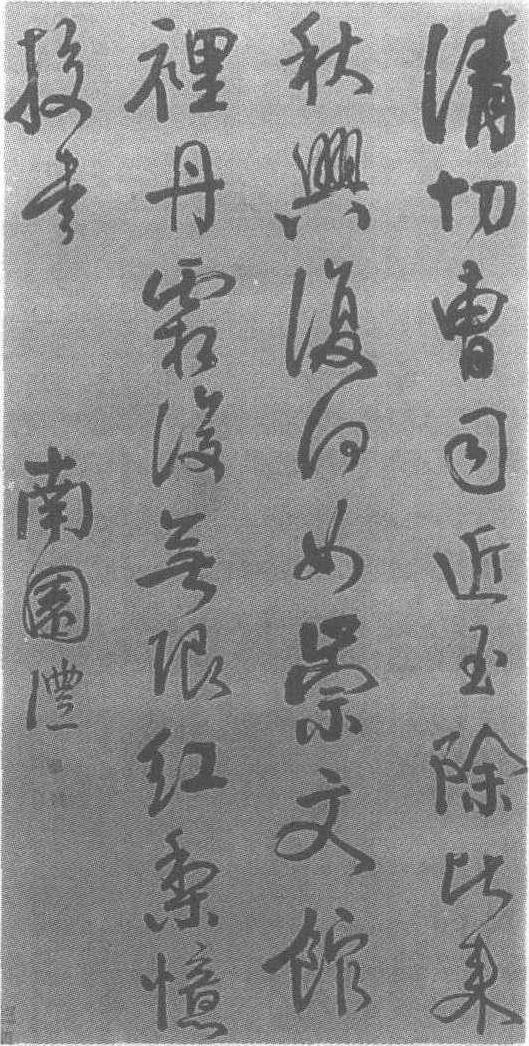 清切曹司近玉除比来
秋興復何如崇文館
裡丹霜後無限紅梨憶
挍書
南園澧